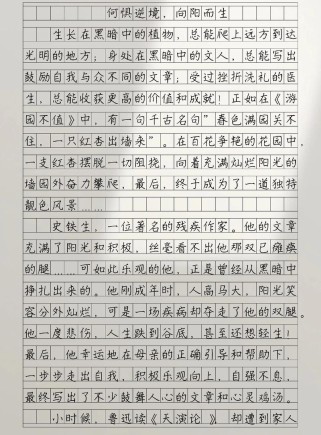 何惧逆境，向阳而生
生长在黑暗中的植物，总能爬上远方到达
光明的地方；身处在黑暗中的文人，总能写出
鼓励自我与众不同的文章；受过挫折洗礼的医
生，总能收获更高的价值和成就！正如在《游
园不值》中，有一句千古名句“春色满园关不
住，一只红杏出墙来”。在百花争艳的花园中，
一支红杏摆脱一切阻挠，向着充满灿烂阳光的
墙园外奋力攀爬，最后，终于成为了一道独特
靓色风景……
史铁生，一位著名的残疾作家。他的文章
充满了阳光和积极，丝毫看不出他那双已瘫痪
的腿……可如此乐观的他，正是曾经从黑暗中
挣扎出来的。他刚成年时，人高马大，阳光笑
容分外灿烂，可是一场疾病却夺走了他的双腿。
他一度悲伤，人生跌到谷底，甚至还想轻生！
最后，他幸运地在母亲的正确引导和帮助下，
一步步走出自我，积极乐观向上，自强不息，
最终写出了不少鼓舞人心的文章和心灵鸡汤。
小时候，鲁迅读《天演论》却遭到家人